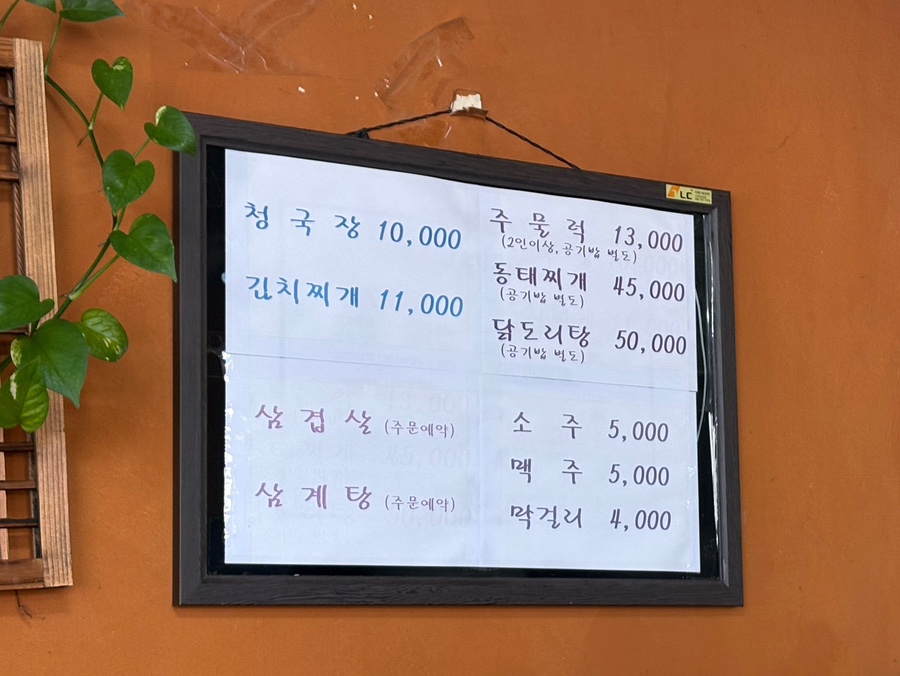 청국장 10,000
김치찌개 11,000
주물럭 13,000
(2인이상, 공기밥 별도)
동태찌개 45,000
(공기밥 별도)
닭도리탕 50,000
(공기밥 별도)
삼겹살 (주문예약)
삼계탕 (주문예약)
소주 5,000
맥주 5,000
막걸리 4,000
LC